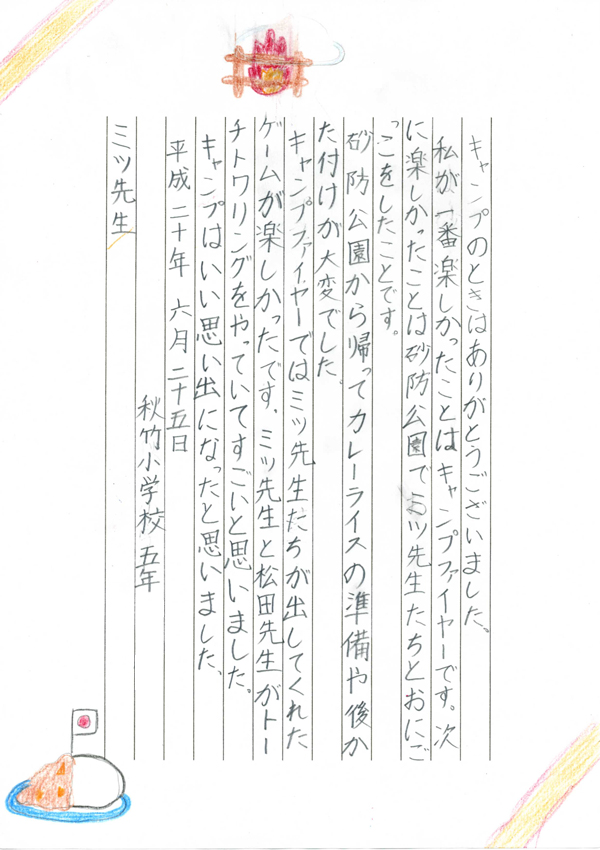 キャンプのときはありがとうございました。
私が一番楽しかったことはキャンプファイヤーです。次
に楽しかったことは砂防公園でミツ先生たちとおにご
っこをしたことです。
砂防公園から帰ってカレーライスの準備や後か
た付けが大変でした。
キャンプファイヤーではミツ先生たちが出してくれた
ゲームが楽しかったです。ミツ先生と松田先生がトー
チトワリングをやっていてすごいと思いました。
キャンプはいい思い出になったと思いました。
平成二十年 六月二十五日
秋竹小学校 五年
ミツ先生